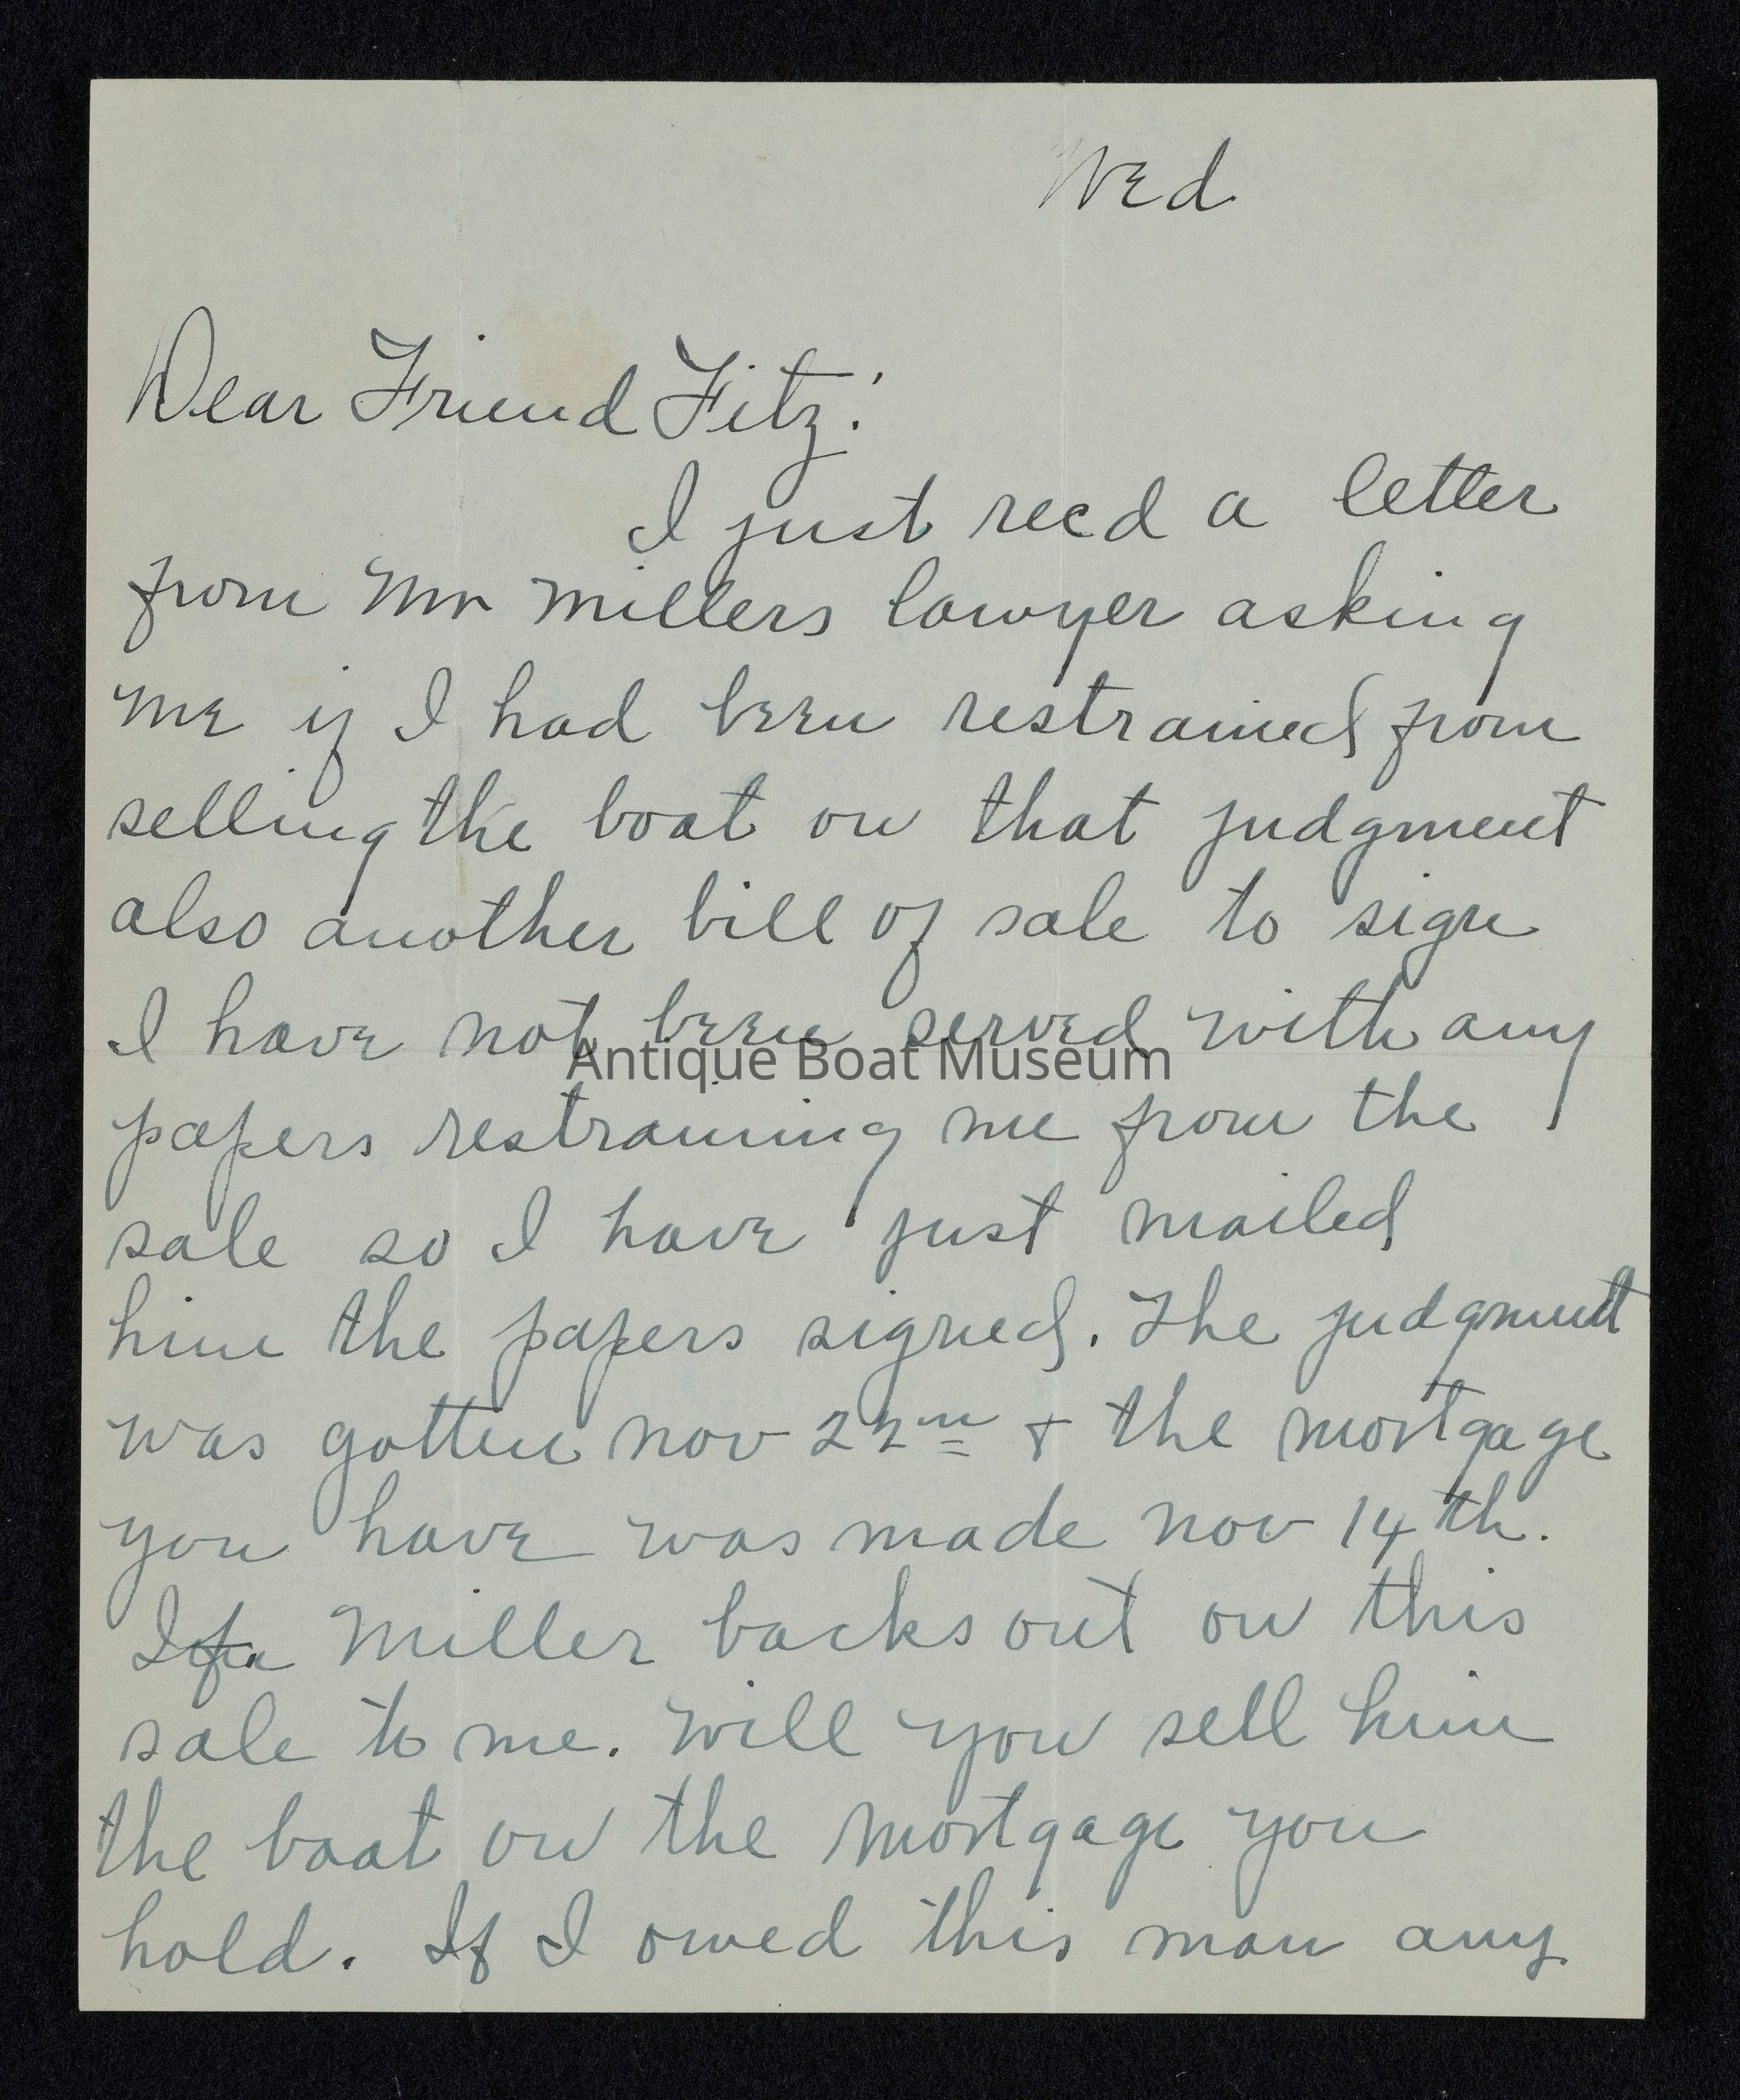 Wed
Dear Friend Fitz:
I just recd a letter
from Mr Millers lawyer asking
me if I had been restrained from
selling the boat on that judgment
also another bill of sale to sign
I have not been served with any
Antique Boat Museum
papers restraining me from the
sale so I have just mailed
him the papers signed. The judgment
was gotten Nov 22nd & the mortgage
you have was made Nov 14th.
If Miller backs out on this
sale to me. Will you sell him
the boat on the mortgage you
hold. If I owed this man any